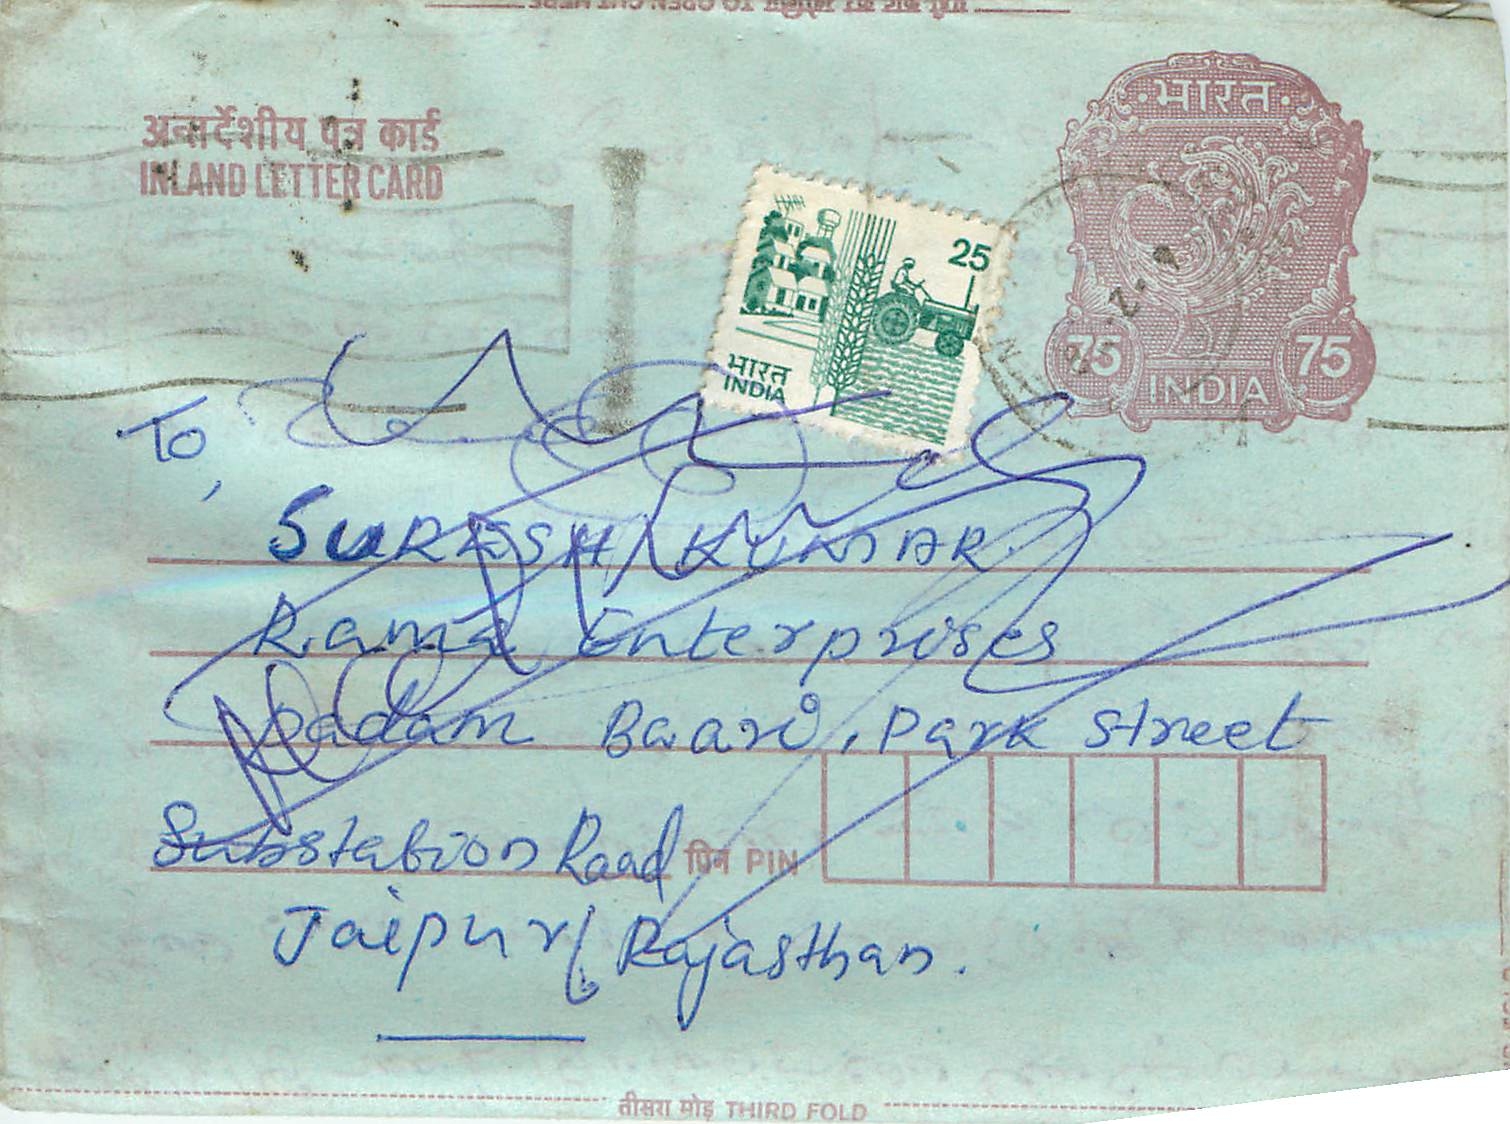 अन्तर्देशीय पत्र कार्ड
INLAND LETTER CARD
भारत
75 75
INDIA
25
भारत
INDIA
To,
SURESH KUMAR
Rama Enterprises
Padam Baari, Park Street
Substation Road
पिन PIN
Jaipur/ Rajasthan.
तीसरा मोड़ THIRD FOLD